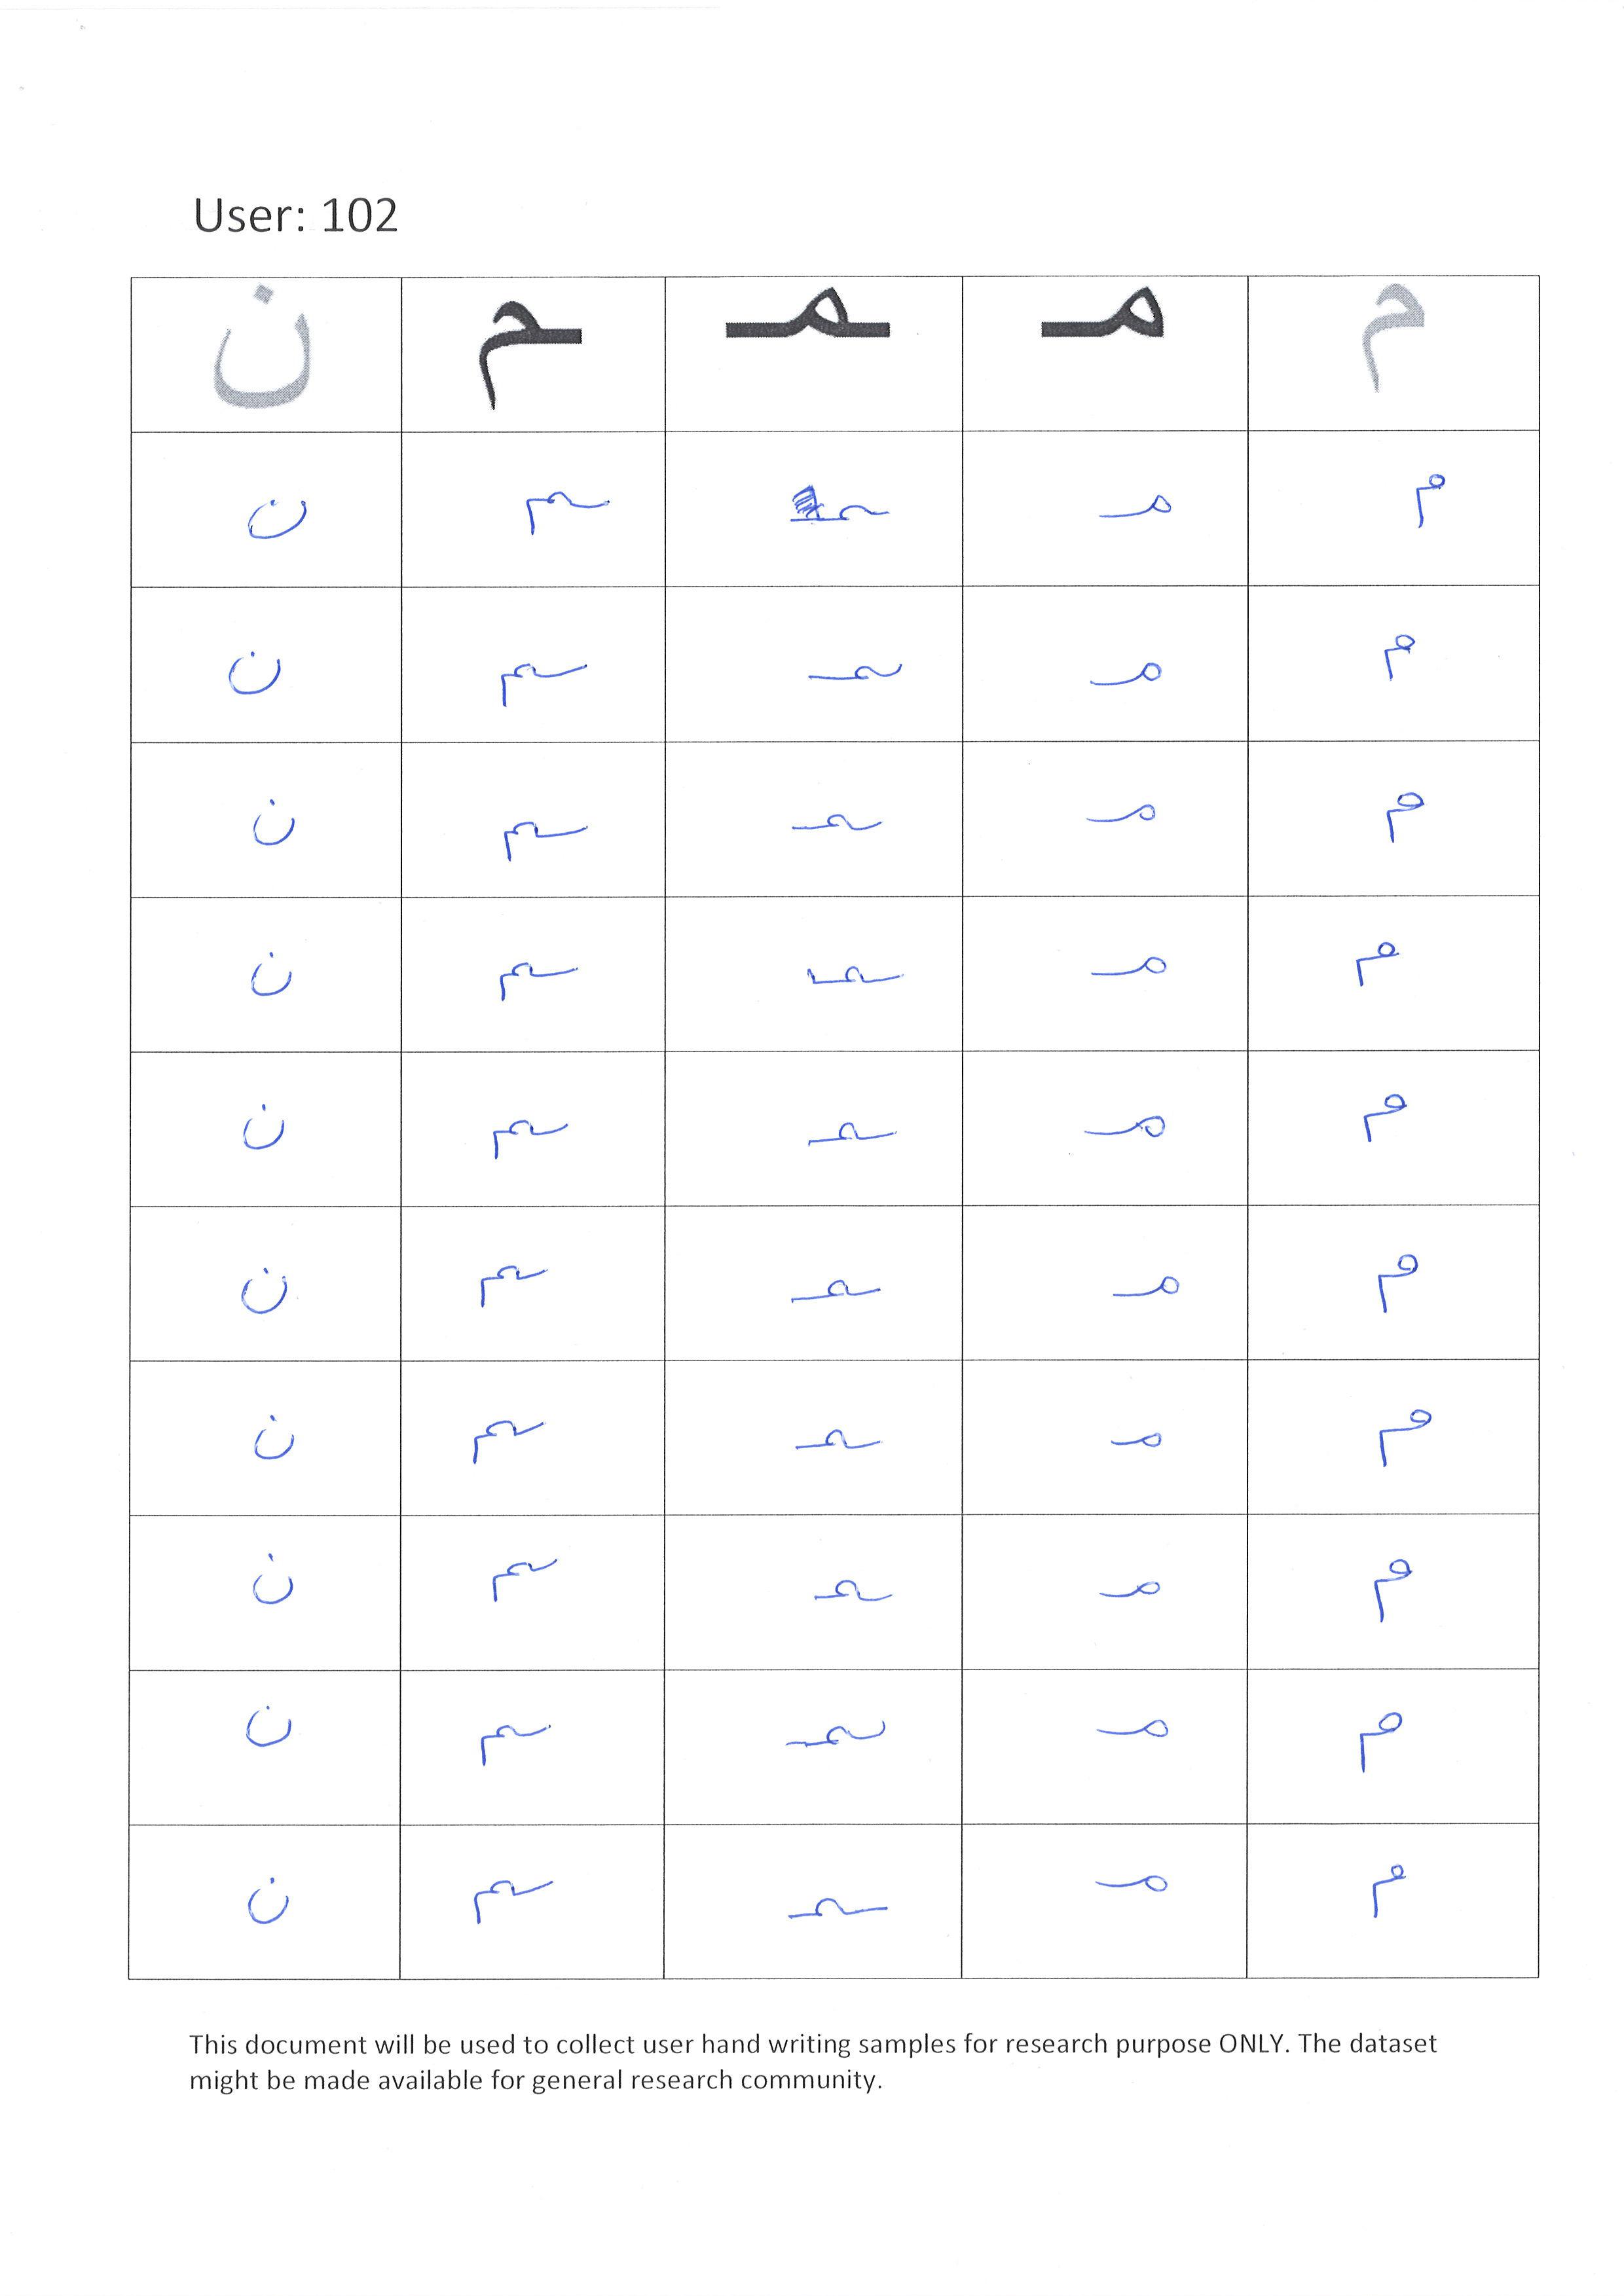 User: 102
م مـ ـمـ ـم ن
م مـ ـمـ ـم ن
م مـ ـمـ ـم ن
م مـ ـمـ ـم ن
م مـ ـمـ ـم ن
م مـ ـمـ ـم ن
م مـ ـمـ ـم ن
م مـ ـمـ ـم ن
م مـ ـمـ ـم ن
م مـ ـمـ ـم ن
م مـ ـمـ ـم ن
This document will be used to collect user hand writing samples for research purpose ONLY. The dataset
might be made available for general research community.